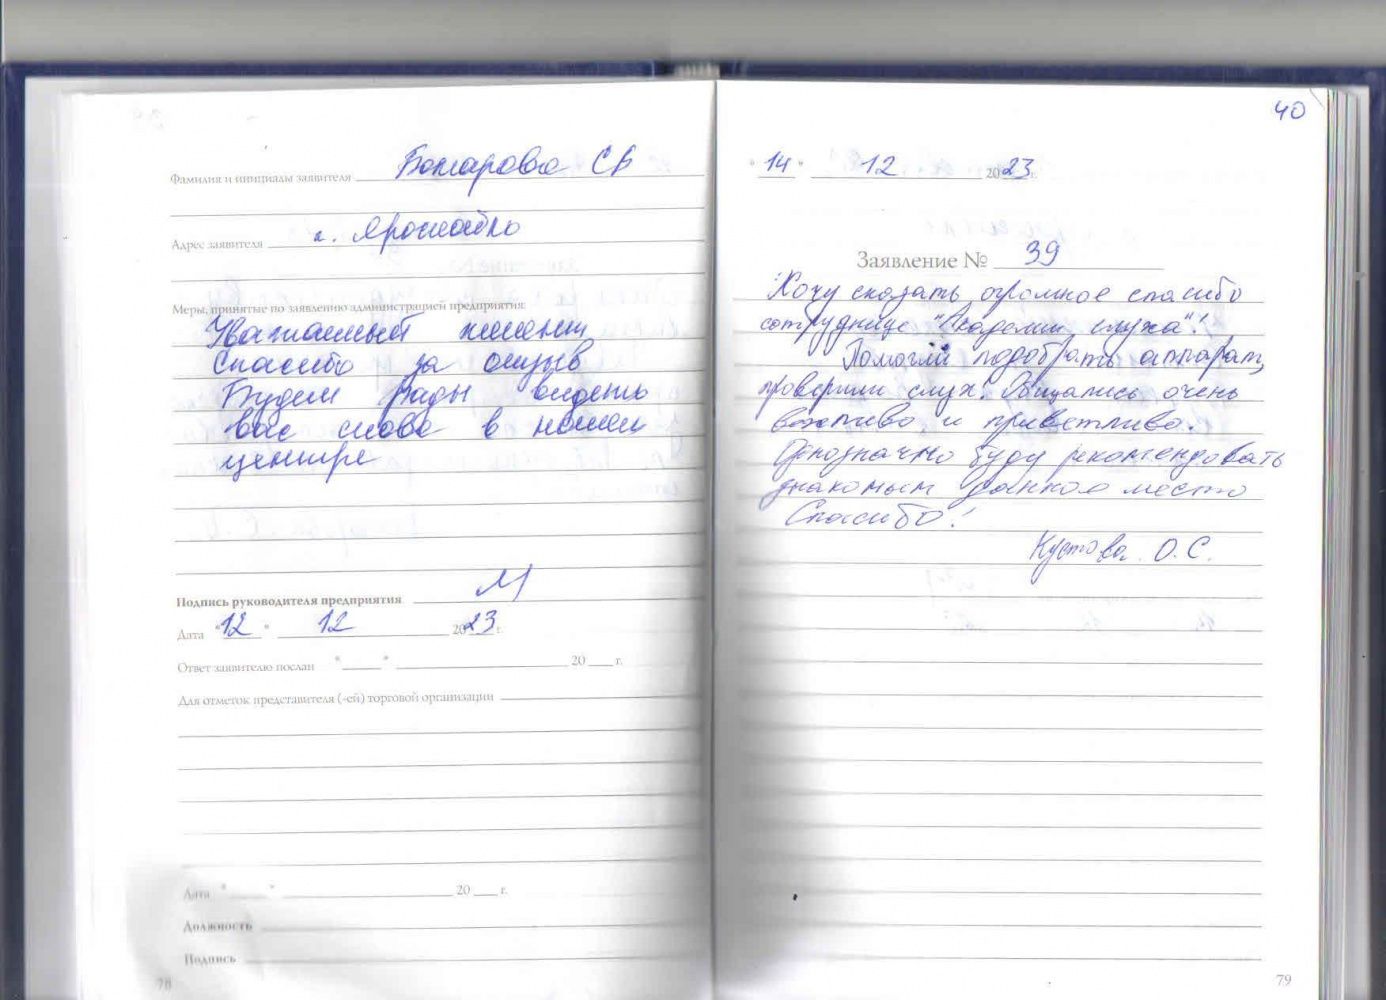 Фамилия и инициалы заявителя Бомарова СВ
Адрес заявителя г. Ярославль
Меры, принятые по заявлению администрацией предприятия:
Уважаемый клиент
Спасибо за отзыв
Будем рады видеть
вас снова в нашем
центре
Подпись руководителя предприятия
Дата "12" 12 2023 г.
Ответ заявителю послан "___" ___ 20 ___ г.
Для отметок представителя (-ей) торговой организации
Дата "___" ___ 20 ___ г.
Должность
Подпись
78
40
"14" 12 2023 г.
Заявление № 39
Хочу сказать огромное спасибо
сотруднице "Академии слуха"!
Помогли подобрать аппарат,
проверили слух. Общались очень
вежливо и приветливо.
Однозначно буду рекомендовать
знакомым данное место
Спасибо!
Кустова О.С.
79